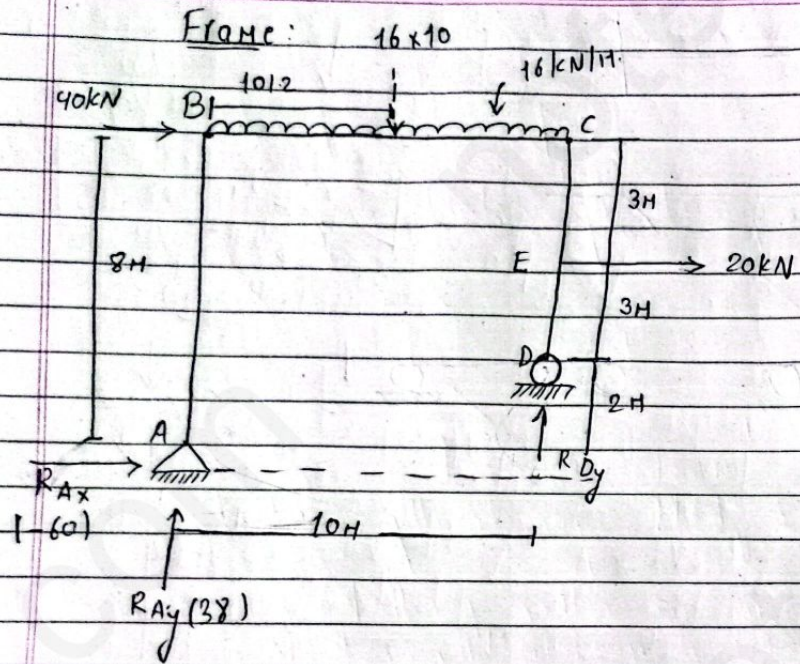 Frame:
16 x 10
16 kN/M.
10/2
40KN
B
C
3M
8M
E
20KN
3M
D
2M
A
RAx
R Dy
(-60)
10M
RAy (38)